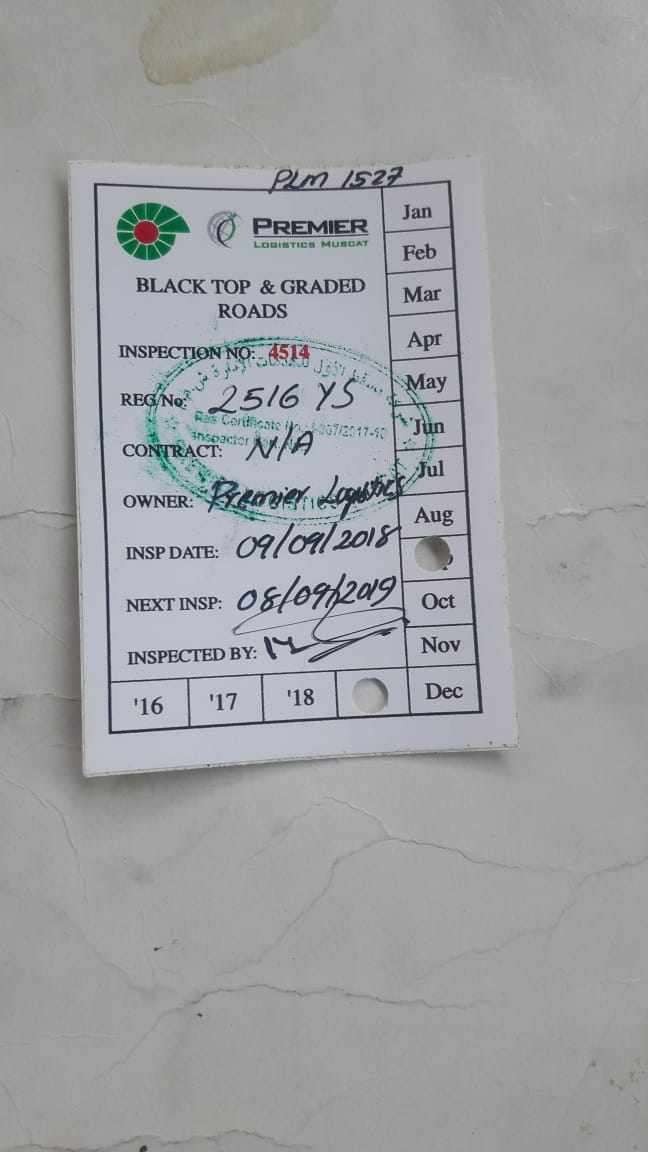 PLM 1527
PREMIER
LOGISTICS MUSCAT
BLACK TOP & GRADED
ROADS
INSPECTION NO: 4514
REG No: 2516 YS
CONTRACT: N/A
OWNER: Premier Logistics
INSP DATE: 09/09/2018
NEXT INSP: 08/09/2019
INSPECTED BY:
'16 '17 '18
Jan
Feb
Mar
Apr
May
Jun
Jul
Aug
Oct
Nov
Dec